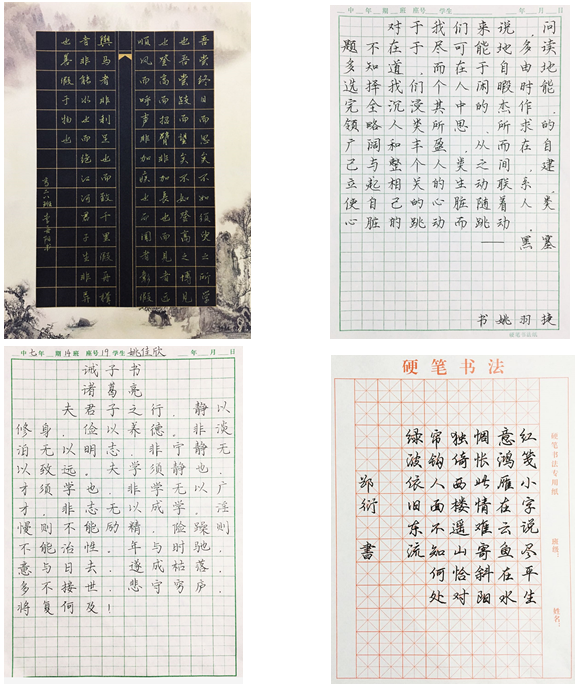 吾尝终日而思矣不如须臾之所学
也吾尝跂而望矣不如登高之博见
也登高而招臂非加长也而见者远
顺风而呼声非加疾也而闻者彰假
舆马者非利足也而致千里假舟楫
者非能水也而绝江河君子生非异
也善假于物也
中 年 班 座号 学生 年 月 日
对于我们来说,问
题不在于尽可能地多读
多知道,而在于自由地
选择我们个人闲暇时能
完全沉浸其中的杰作,
领略人类所思、所求的
广阔和丰盈,从而在自
己与整个人类之间,建
立起相关的生动联系,
使自己的心脏随着人类
心脏的跳动而跳动。
——黑塞
书 姚羽捷
硬笔书法纸
中七年 14班 座号19 学生 姚佳欣 年 月 日
诫子书
诸葛亮
夫君子之行,静以
修身,俭以养德。非谈
泊无以明志,非宁静无
以致远。夫学须静也,
才须学也,非学无以广
才,非志无以成学。淫
慢则不能励精,险躁则
不能治性。年与时驰,
意与日去,遂成枯落,
多不接世,悲守穷庐,
将复何及!
硬笔书法
红笺小字说尽平生
意鸿雁在云鱼在水
惆怅此情难寄斜阳
独倚西楼遥山恰对
帘钩人面不知何处
绿波依旧东流
郑衍 书
硬笔书法专用纸
班级:
姓名: